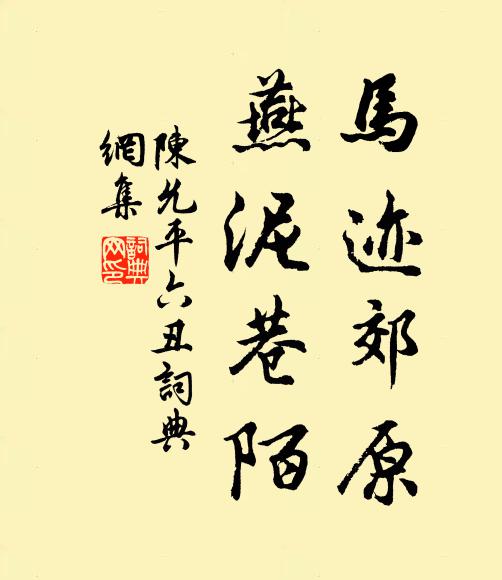 馬迹郊原
燕泥巷陌
陳允平六丑詞典
網集
詞典
网印